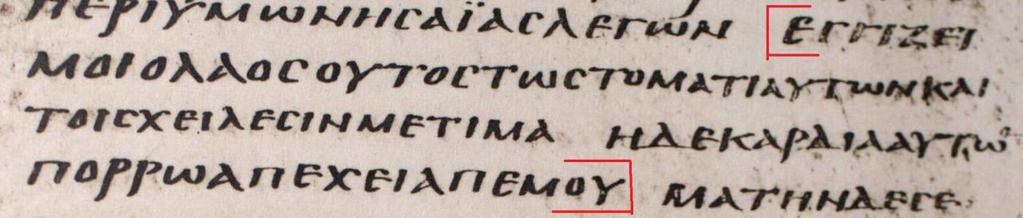 ΠΕΡΙΥΜΩΝΗΣΑΪΑΣΛΕΓΩΝ ΕΓΓΙΖΕΙ
ΜΟΙΟΛΑΟΣΟΥΤΟΣΤΩΣΤΟΜΑΤΙΑΥΤΩΝΚΑΙ
ΤΟΙΣΧΕΙΛΕΣΙΝΜΕΤΙΜΑ ΗΔΕΚΑΡΔΙΑΑΥΤΩ
ΠΟΡΡΩΑΠΕΧΕΙΑΠΕΜΟΥ ΜΑΤΗΝΔΕΣΕ